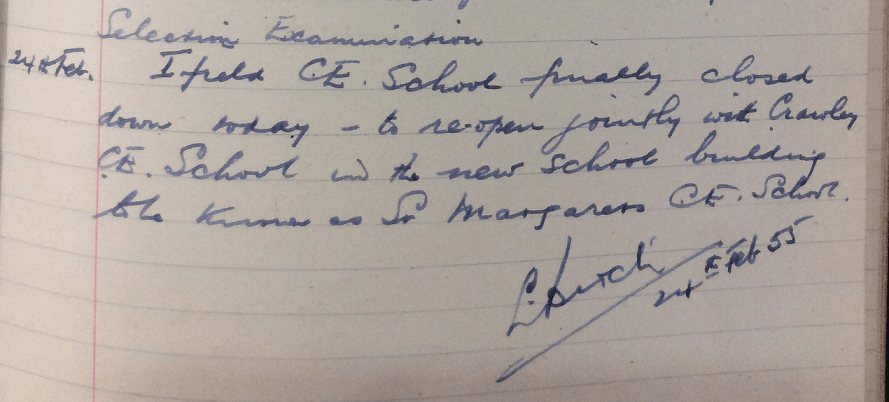 Selection Examination
24th Feb. Ifield C.E. School finally closed
down today - to re-open jointly with Crawley
C.E. School in the new school building
to be known as St Margarets C.E. School.
24th Feb 55